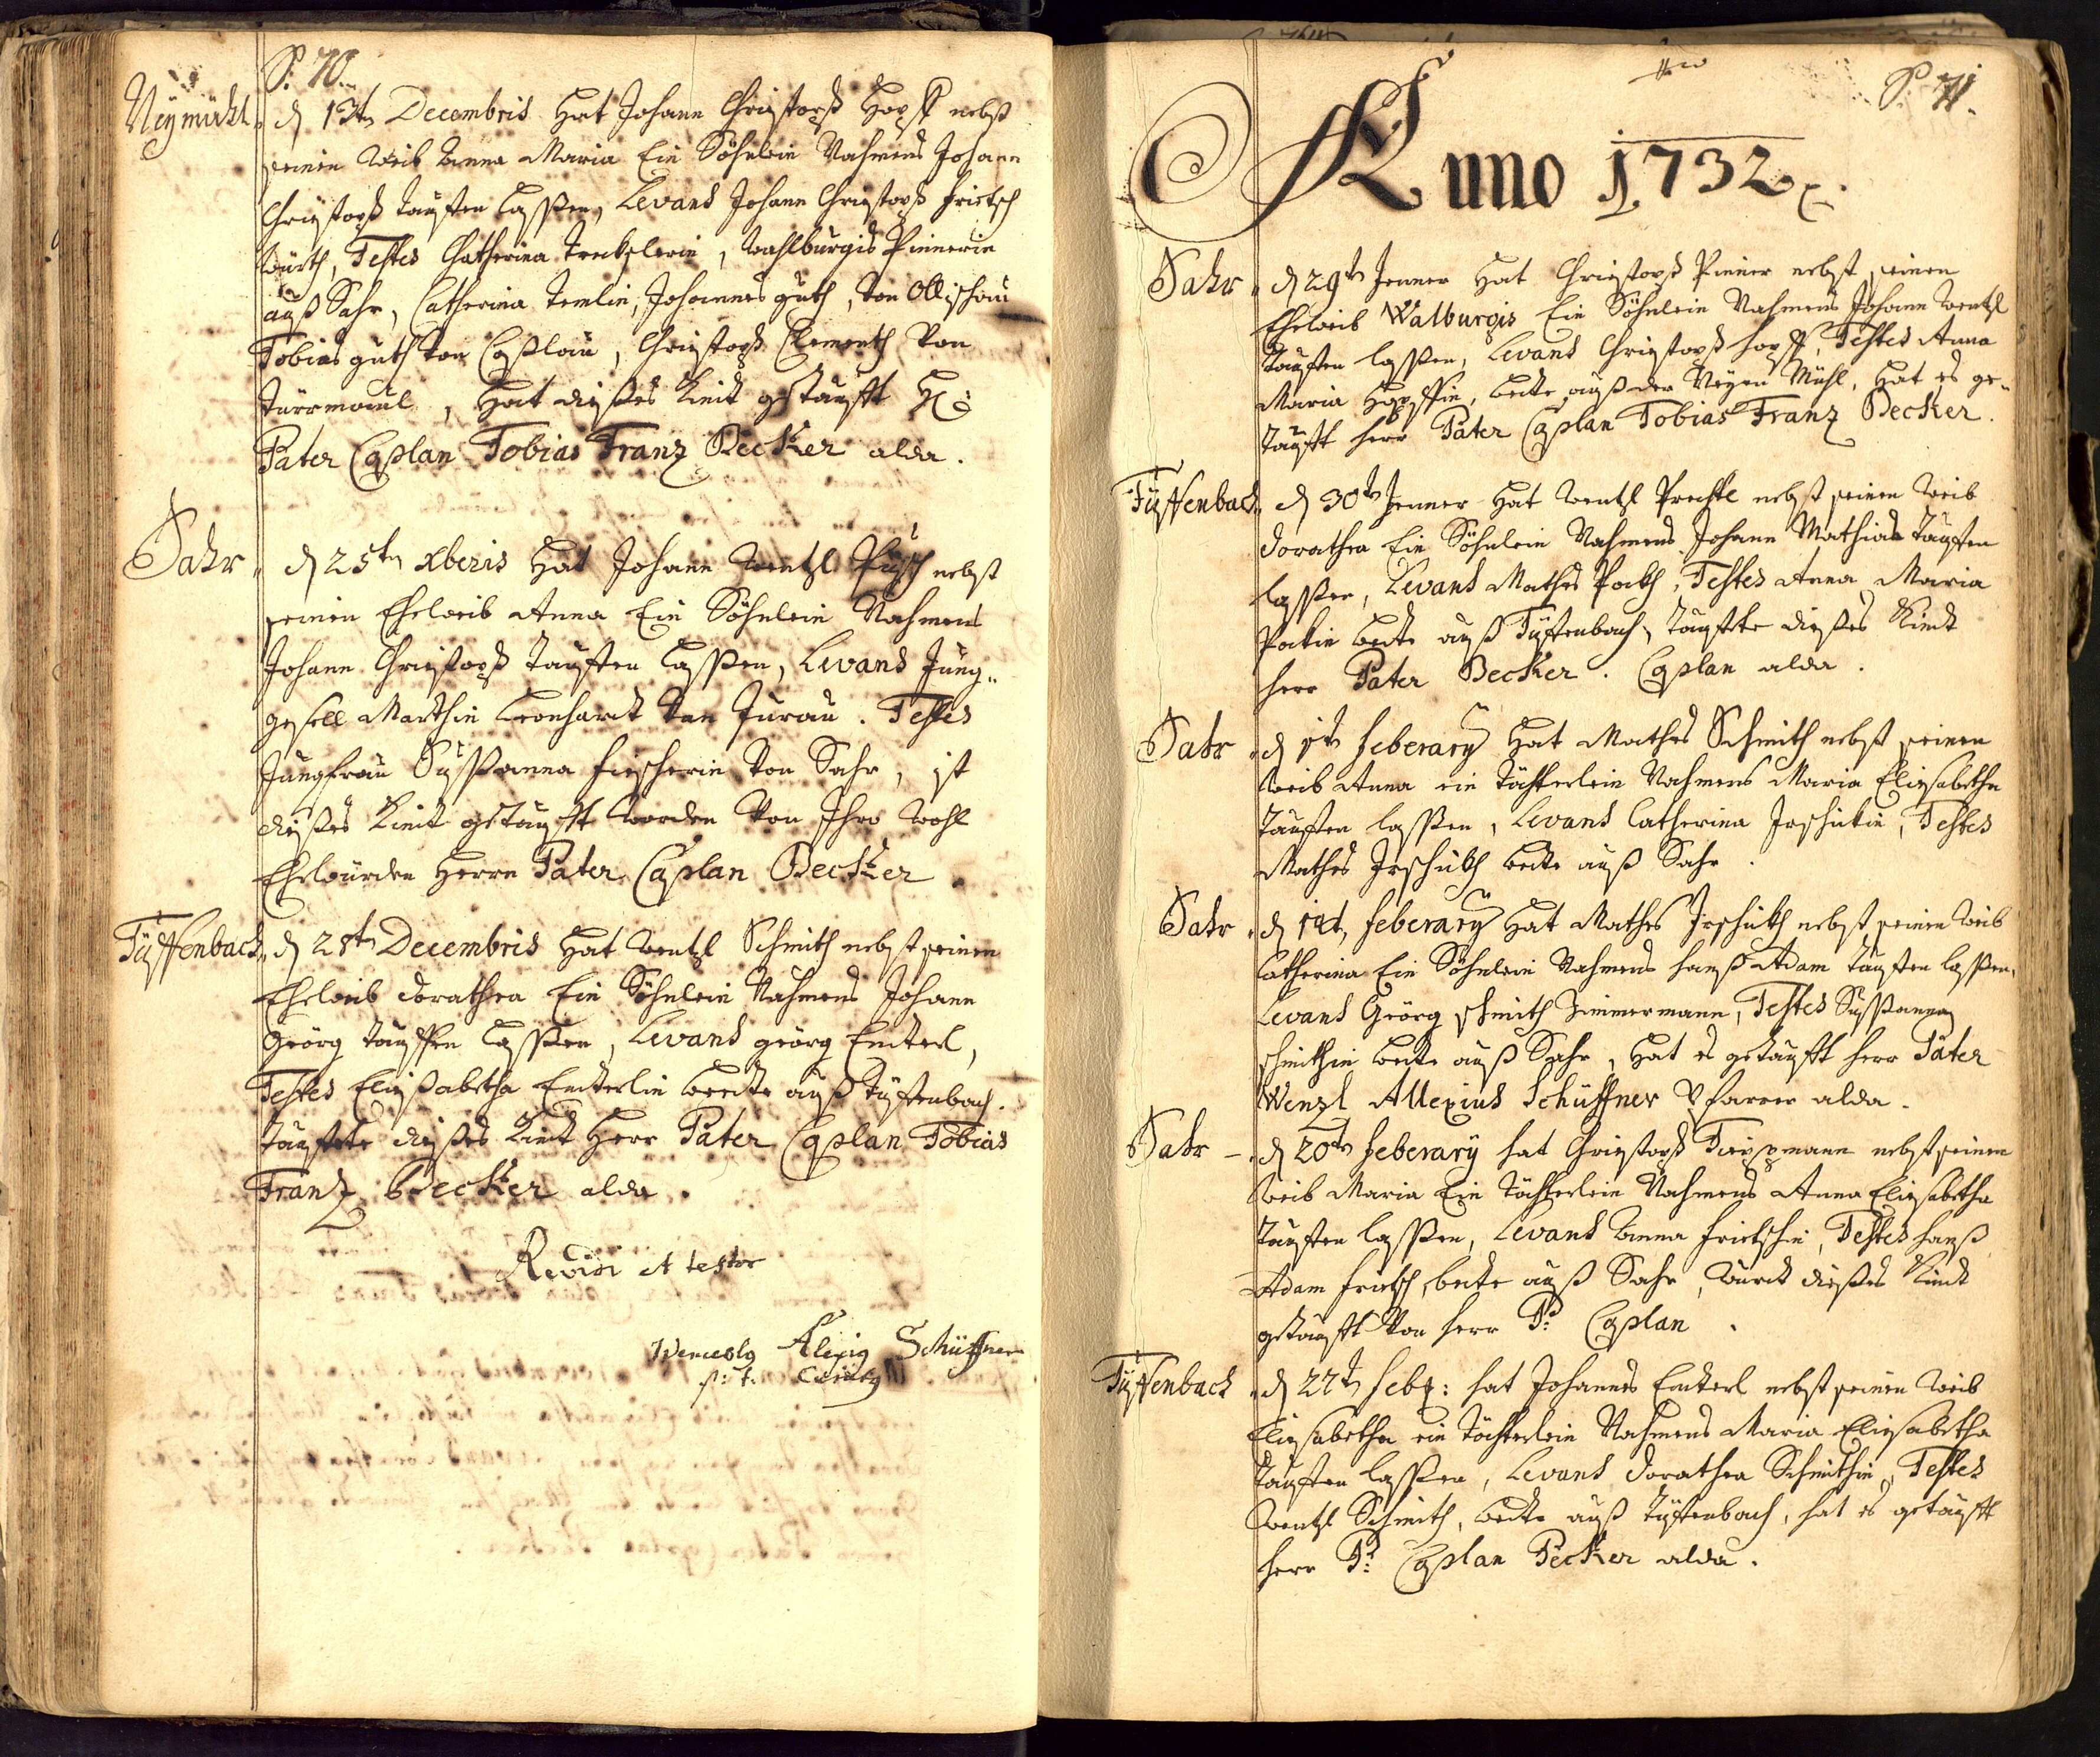 P: 70.
Neÿmühl. d 13tn Decembris Hat Johann Christoph Hopff nebst
seinen Weib Anna Maria Ein Söhnlein Nahmens Johann
Christoph tauffen lassen, Levans Johann Christoph Frietsch
Würth, Testes Catherina Trechslerin, Wahlburgis Pinnerin
auß Sahr, Catherina Temlin, Johannes guth, Von Ollischau
Tobias guth Von Caßlau, Christoph Clementh Von
Türrmaul, Hat dießes Kind getaufft H:
Pater Caplan Tobias Franz Becker alda.
Sahr. d 25tn Xberis Hat Johann Wentzl Püsch nebst
seinen Eheweib Anna Ein Söhnlein Nahmens
Johann Christoph tauffen lassen, Levans Jung„
gesell Marthin Leonhardt Von Jurau. Testes
Jungfrau Sußanna Fischerin Von Sahr, ist
dießes Kind getaufft worden Von Ihro Wohl
Ehrwürden Herrn Pater Caplan Becker.
Tüffenbach. d 28tn Decembris Hat Wentzl Schmith nebst seinen
Eheweib Dorathea Ein Söhnlein Nahmens Johann
Geörg tauffen lassen, Levans geörg Enderl,
Testes Elisabetha Enderlin beede auß tüffenbach.
tauffete dießes Kind Herr Pater Caplan Tobias
Franz becker alda.
Revidi et testor
Wenceslg Alexig Schüffner
p: t: Curatg
P. 71.
Anno 1732
Sahr. d 29tn Jenner Hat Christoph Pinner nebst seinen
Eheweib Walburgis Ein Söhnlein Nahmens Johann Wentzl
tauffen lassen, Levans Christoph Hopff, Testes Anna
Maria Hopffin, beede auß der Neÿen Mühl, Hat es ge„
taufft Herr Pater Caplan Tobias Franz Becker.
Tüffenbach. d 30tn Jenner Hat Wentzl Prechtl nebst seinen Weib
Dorathea Ein Söhnlein Nahmens Johann Mathias tauffen
lassen, Levans Mathes Path, Testes Anna Maria
Patin beede auß Tüffenbach, tauffete dießes Kind
Herr Pater Becker. Caplan alda.
Sahr. d Feberarÿ Hat Mathes Schmith nebst seinen
Weib Anna ein Töchterlein Nahmens Maria Elisabetha
tauffen lassen, Levans Catherina Irschükin, Testes
Mathes Irschükh beede auß Sahr.
Sahr. d Feberarÿ Hat Mathes Irschükh nebst seinen Weib
Catherina Ein Söhnlein Nahmens Hanß Adam tauffen lassen,
Levans Geörg schmith Zimmermann, Testes Sußanna
schmithin beede auß Sahr, Hat es getaufft Herr Pater
Wenzl Allexius Schüffner Pfarrer alda.
Sahr. d 20tn Feberarÿ hat Christoph nebst seinen
Weib Maria Ein Töchterlein Nahmens Anna Elisabetha
tauffen lassen, Levans Anna Frietschin, Testes Hanß
Adam Frietsch, beede auß Sahr, wurd dießes Kind
getaufft Von Herr P: Caplan.
Tüffenbach. d 22tn Feb: hat Johannes Enderl nebst seinen Weib
Elisabetha ein Töchterlein Nahmens Maria Elisabetha
tauffen lassen, Levans Dorathea Schmithin, Testes
Wentzl Schmith, beede auß tüffenbach, hat es getaufft
Herr P: Caplan Pecker alda.